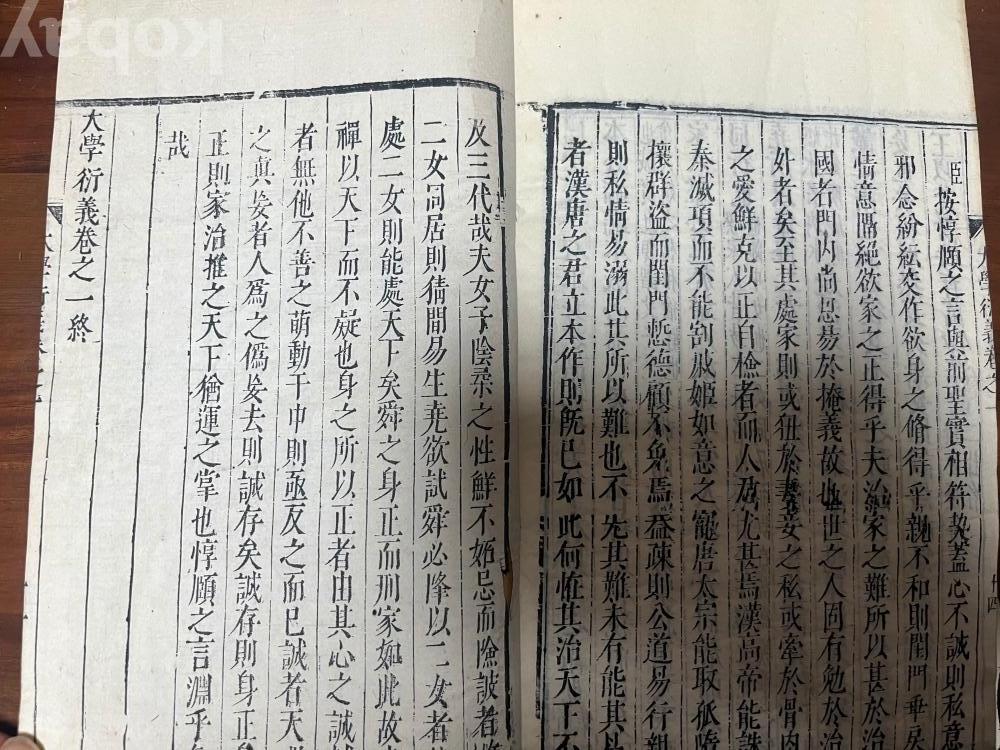 大學衍義卷之一
臣按惇頤之言與前聖實相符契蓋心不誠則私意
邪念紛紜交作欲身之脩得乎親不和則閨門乖戾
情意隔絕欲家之正得乎夫治家之難所以甚於治
國者門内尚恩易於掩義故也世之人固有勉於治
外者矣至其處家則或狃於妻妾之私或牽於骨肉
之愛鮮克以正自檢者而人君尤甚焉漢高帝能
秦滅項而不能割戚姬如意之寵唐太宗能取孤隋
攘群盜而閨門慙德顧不免焉蓋疎則公道易行親
則私情易溺此其所以難也不先其難未有能其易
者漢唐之君立本作則既已如此何怪其治天下不
及三代哉夫女子陰柔之性鮮不妬忌而險詖者
二女同居則猜間易生堯欲試舜必降以二女者
處二女則能處天下矣舜之身正而刑家如此故
禪以天下而不疑也身之所以正者由其心之誠
者無他不善之萌動于中則亟反之而已誠者天
之眞妄者人爲之僞妄去則誠存矣誠存則身正
正則家治推之天下猶運之掌也惇頤之言淵乎
哉
大學衍義卷之一終
kobay